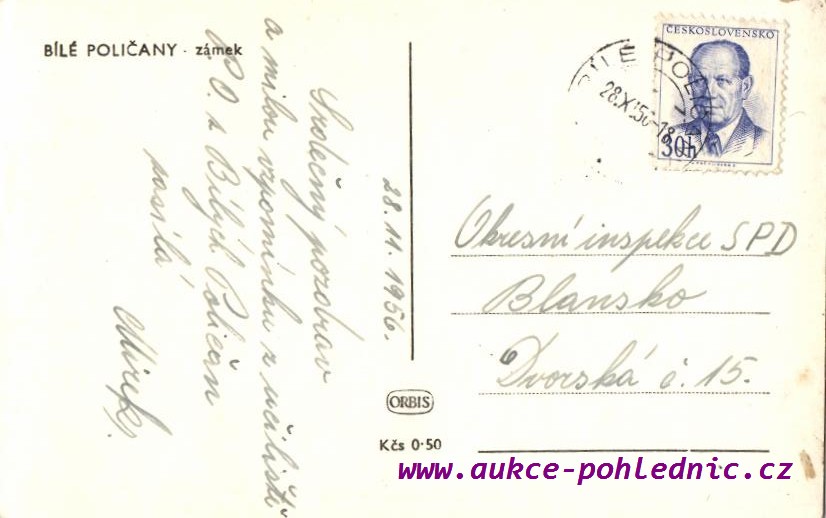 BÍLÉ POLIČANY · zámek
28. 11. 1956.
Společný pozdrav
a milou vzpomínku z učiliště
P.O. z Bílých Poličan
zasílá
Mirek.
ČESKOSLOVENSKO
30h
BÍLÉ POLIČANY
28.XI.56-18
Okresní inspekce SPD
Blansko
Dvorská č. 15.
ORBIS
Kčs 0·50
www.aukce-pohlednic.cz